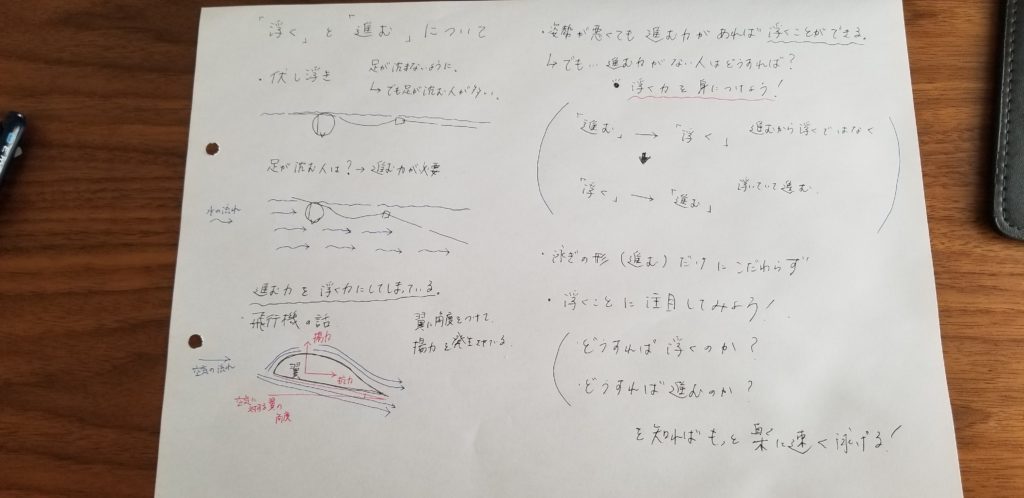 「浮く」と「進む」について
・伏し浮き
足が沈まないように。
↳でも足が沈む人が多い。
足が沈む人は？→進む力が必要
水の流れ
進む力を浮く力にしてしまっている。
・飛行機の話
翼に角度をつけて、
揚力を発生させている。
揚力
空気の流れ
翼
抗力
空気に
対する翼の
角度
・姿勢が悪くても進む力があれば浮くことができる。
↳でも…進む力がない人はどうすれば？
浮く力を身につけよう！
「進む」→「浮く」 進むから浮くではなく
「浮く」→「進む」 浮いていて進む
・泳ぎの形（進む）だけにこだわらず
・浮くことに注目してみよう！
・どうすれば浮くのか？
・どうすれば進むのか？
を知ればもっと楽に速く泳げる！